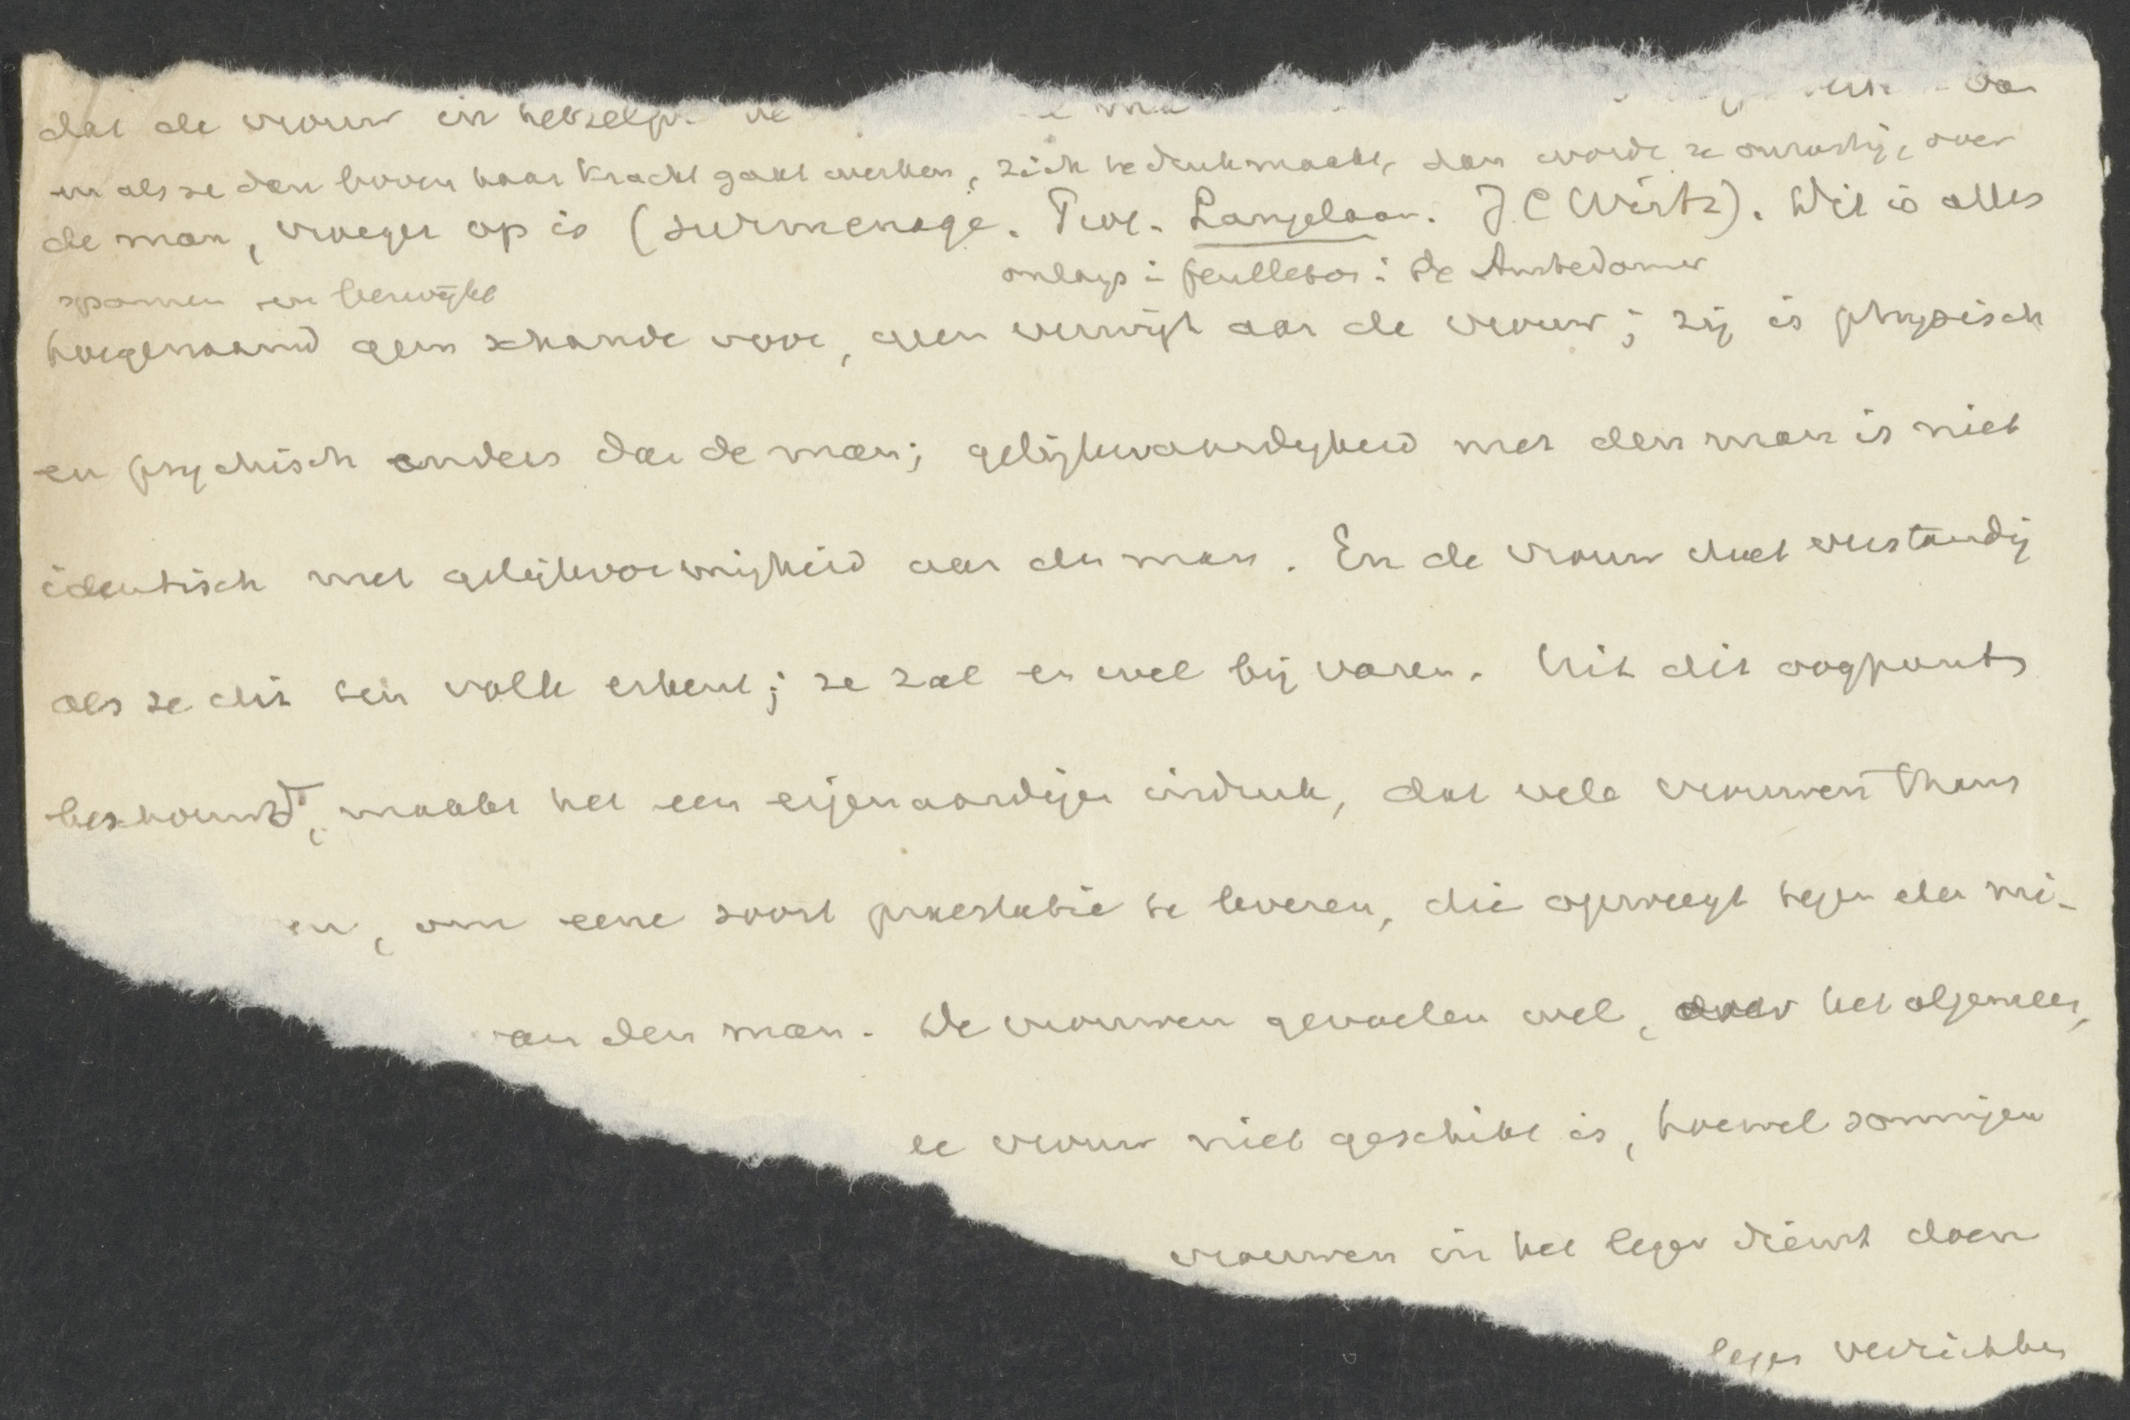 dat de vrouw in hetzelf
en als ze dan boven haar kracht gaat werken, zich te druk maakt, dan wordt ze onrustig, over
de man, vroeger op is (surmenage. Prof. Langelaan. J C Wirtz). Dit is alles
spannen en
onlangs i feuilleton i De Amsterdammer
hoegenaamd geen schande voor, geen verwijt aan de vrouw; zij is physisch
en psychisch anders dan de man; gelijkwaardigheid met den man is niet
identisch met gelijkvormigheid aan den man. En de vrouw doet verstandig
als ze dit ten volle erkent; ze zal er wel bij varen. Uit dit oogpunt
beschouwd, maakt het een eigenaardigen indruk, dat vele vrouwen thans
en, om eene soort praestatie te leveren, die opweegt tegen den mi-
an den man. De vrouwen gevoelen wel, over het algemeen,
de vrouw niet geschikt is, hoewel sommigen
vrouwen in het leger dienst doen
leger verrichten